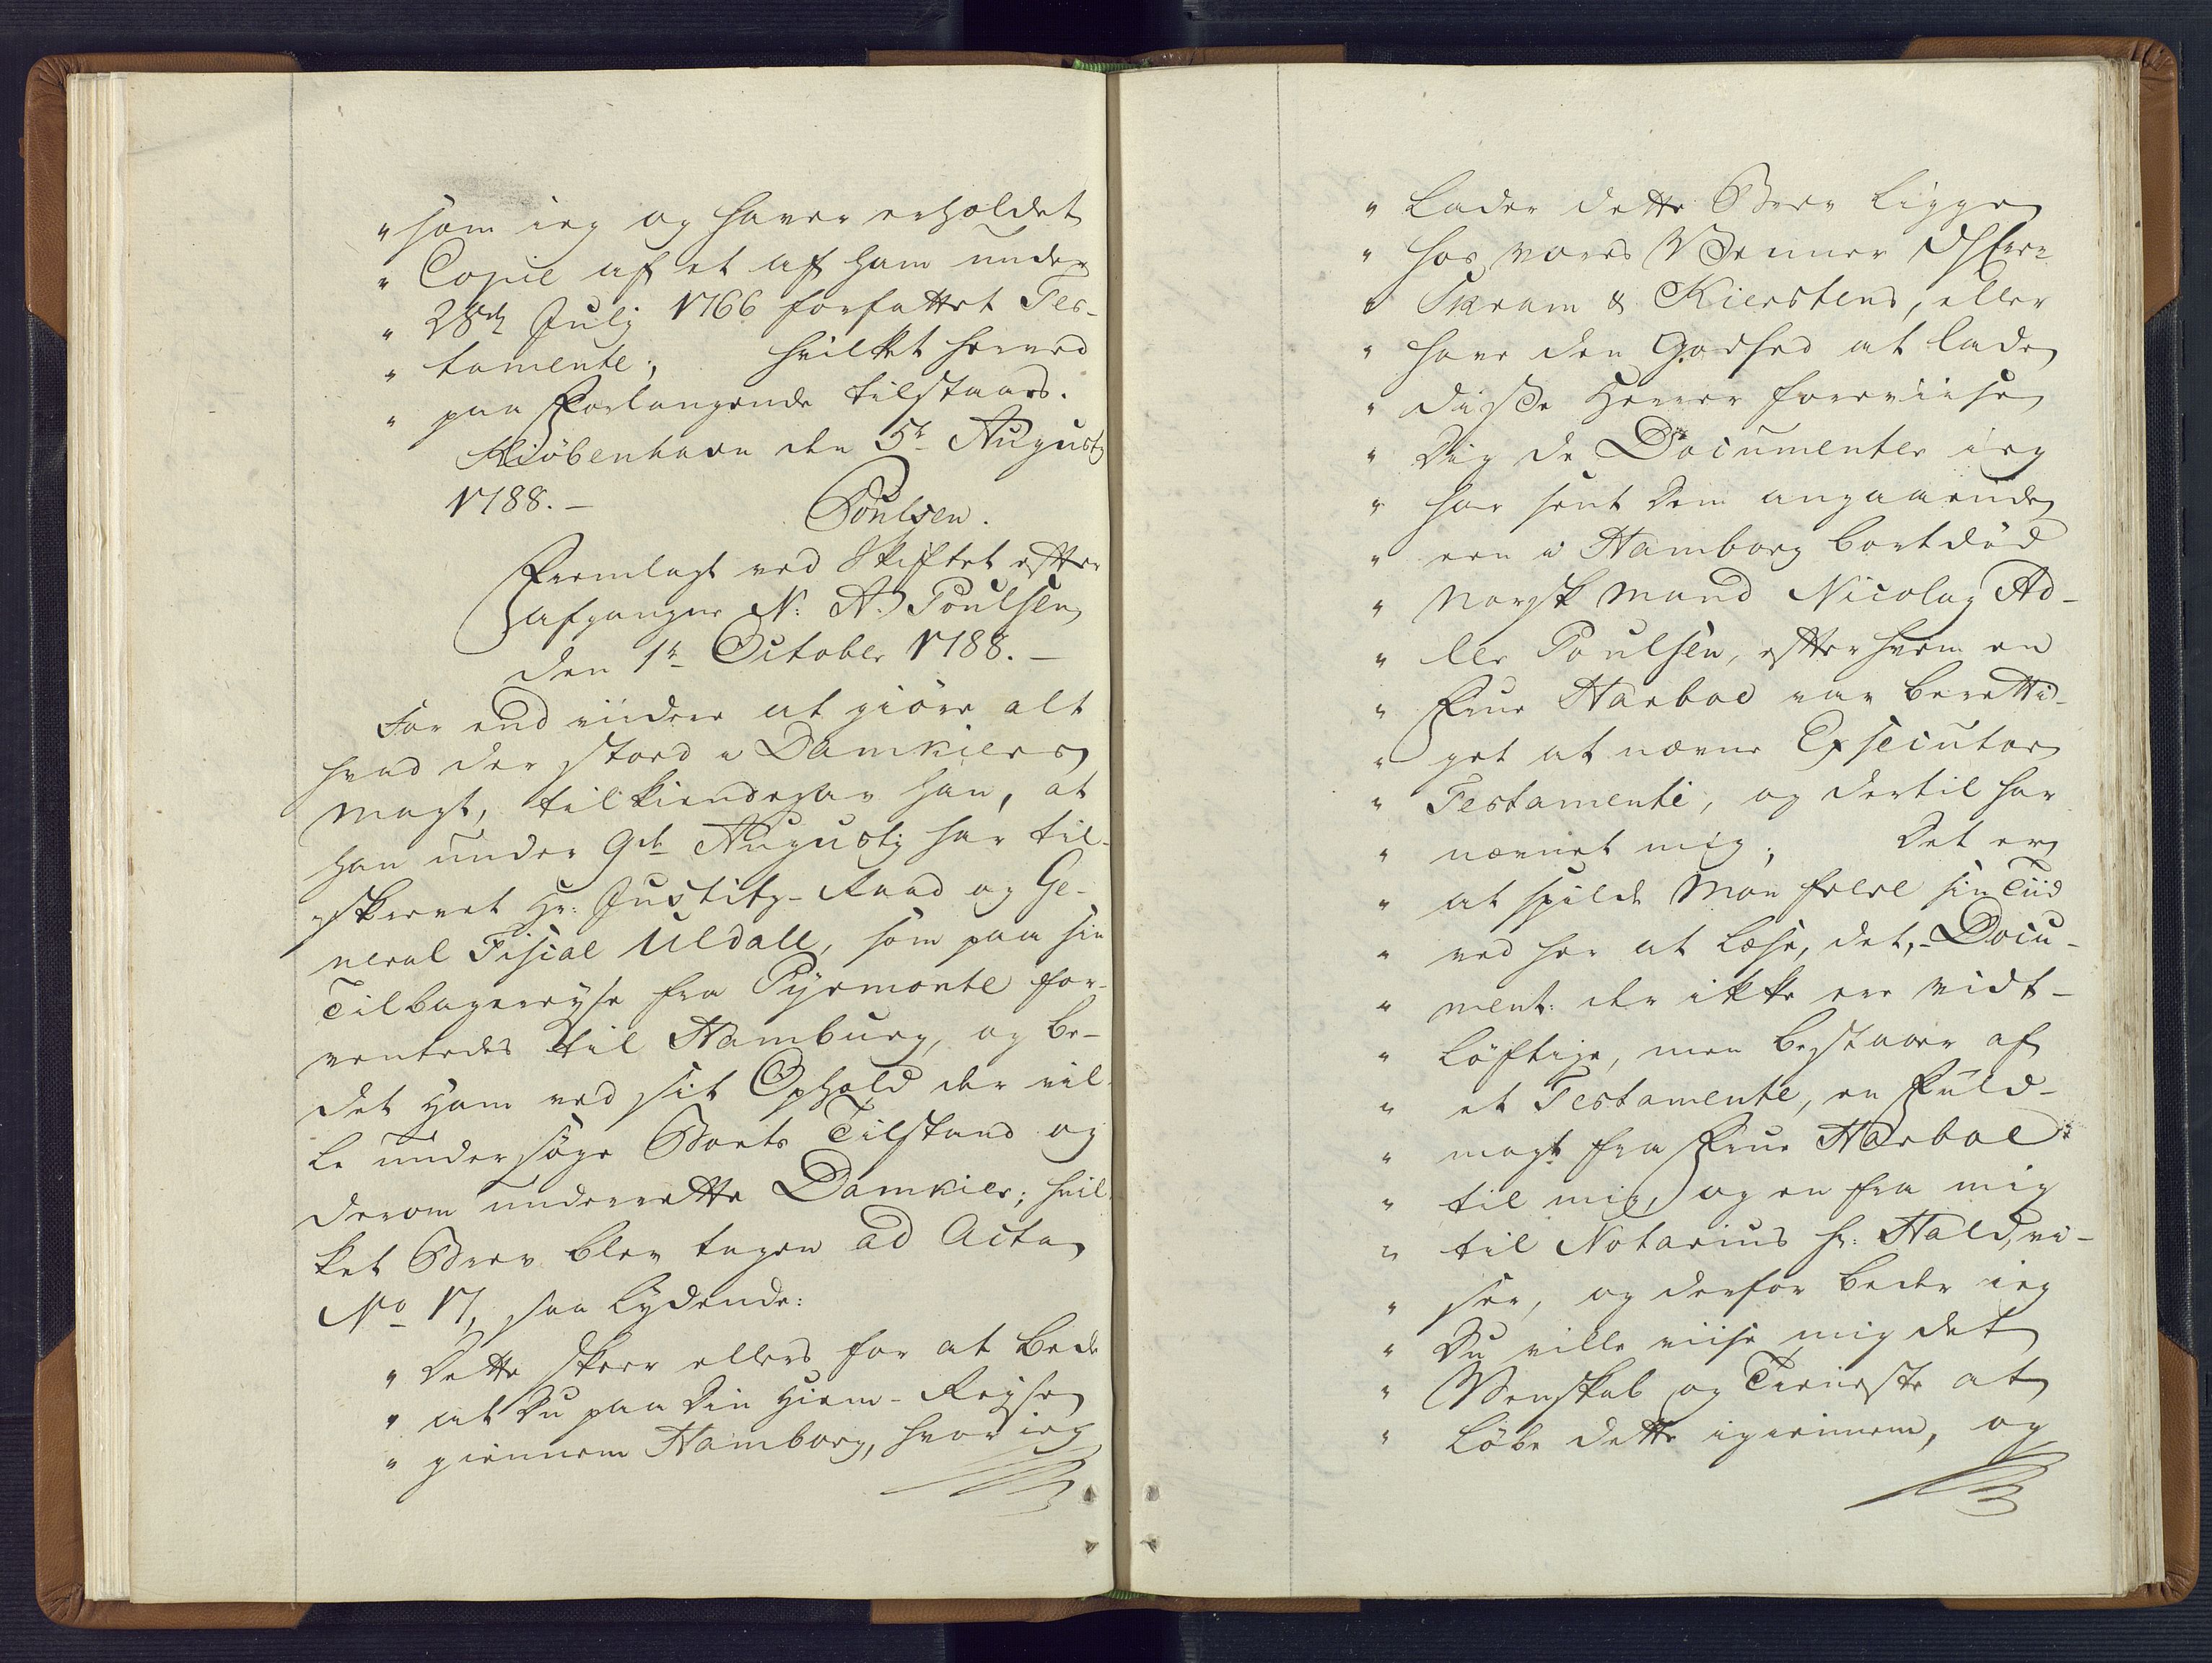 " som ieg og haver erholdet
" Copie af et af ham under
" 28de Julij 1766 forfattet Tes-
" tamente; hvilket herved
" paa Forlangende tilstaaes.
Kiöbenhavn den 5te Augustj
1788. — Poulsen.
Fremlagt ved Skiftet efter
afgangne N: A. Poulsen
den 1te October 1788. —
For end videre at giöre alt
hvad der stoed i Damkiers
Magt, tilkiendegav han, at
han under 9de Augustj har til-
skrevet Hr: Justitz-Raad og Ge-
neral Fiscal Uldall, som paa sin
Tilbagereyse fra Pyrmonte for-
ventedes til Hamburg, og be-
det ham ved sit Ophold der vil-
le undersöge Boets Tilstand og
derom underrette Damkier; hvil-
ket Brev blev tagen ad Acta
No 17, saa lydende:
" Dette skeer ellers for at bede
" at Du paa Din Hiem-Reyse
" giennem Hamborg, hvor ieg
" lader dette Brev ligge
" hos vores Venner Herr
" Skram & Kierstens, eller
" have den Godhed at lade
" disse Herrer foreviise
" Dig de Documenter ieg
" har sent dem angaaende
" een i Hamborg bortdöd
" Norsk Mand Nicolay Ad-
" ler Poulsen, efter hvem en
" Frue Harboe var beretti-
" get at nævne Exsecutor
" Testamenti, og dertil har
" nævnet mig; Det er
" at spilde Man feel sin Tiid
" ved her at læse, det, Docu-
" ment: der ikke ere vidt-
" löftige, men bestaaer af
" et Testamente, en Fuld-
" magt fra Frue Harboe
" til mig, og en fra mig
" til Notarius hr: Hald, vi-
" ser, og derfor beder ieg
" Du ville viise mig det
" Venskab og Tieneste at
" löbe dette igiennem, og